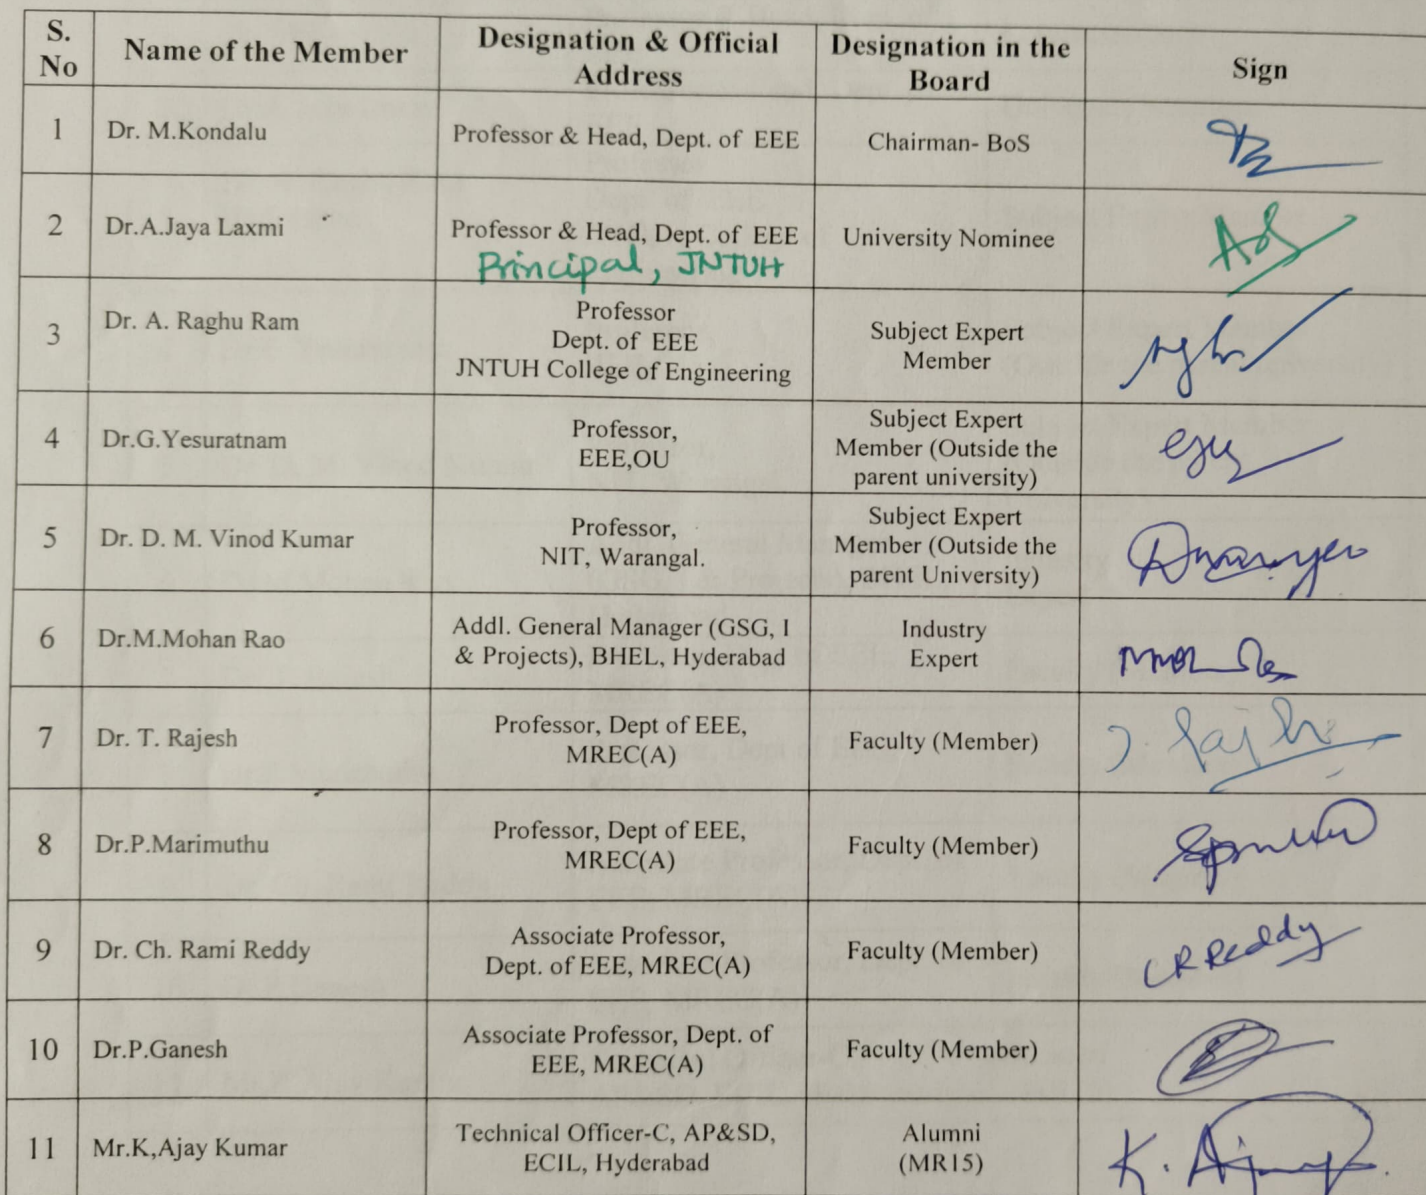 S. No Name of the Member Designation & Official Address Designation in the Board Sign
1 Dr. M.Kondalu Professor & Head, Dept. of EEE Chairman- BoS
2 Dr.A.Jaya Laxmi Professor & Head, Dept. of EEE University Nominee
Principal, JNTUH
3 Dr. A. Raghu Ram Professor
Dept. of EEE
JNTUH College of Engineering
Subject Expert
Member
4 Dr.G.Yesuratnam Professor,
EEE,OU
Subject Expert
Member (Outside the
parent university)
5 Dr. D. M. Vinod Kumar Professor,
NIT, Warangal.
Subject Expert
Member (Outside the
parent University)
6 Dr.M.Mohan Rao Addl. General Manager (GSG, I
& Projects), BHEL, Hyderabad
Industry
Expert
7 Dr. T. Rajesh Professor, Dept of EEE,
MREC(A)
Faculty (Member)
8 Dr.P.Marimuthu Professor, Dept of EEE,
MREC(A)
Faculty (Member)
9 Dr. Ch. Rami Reddy Associate Professor,
Dept. of EEE, MREC(A)
Faculty (Member)
CR Reddy
10 Dr.P.Ganesh Associate Professor, Dept. of
EEE, MREC(A)
Faculty (Member)
11 Mr.K,Ajay Kumar Technical Officer-C, AP&SD,
ECIL, Hyderabad
Alumni
(MR15)